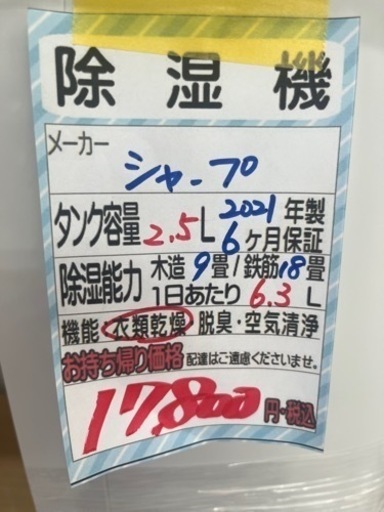 除湿機
メーカー
シャープ
タンク容量 2.5L 2021年製
6ヶ月保証
除湿能力 木造9畳/鉄筋18畳
1日あたり 6.3L
機能 衣類乾燥 脱臭・空気清浄
お持ち帰り価格 配達はご遠慮くださいませ。
17,800円・税込